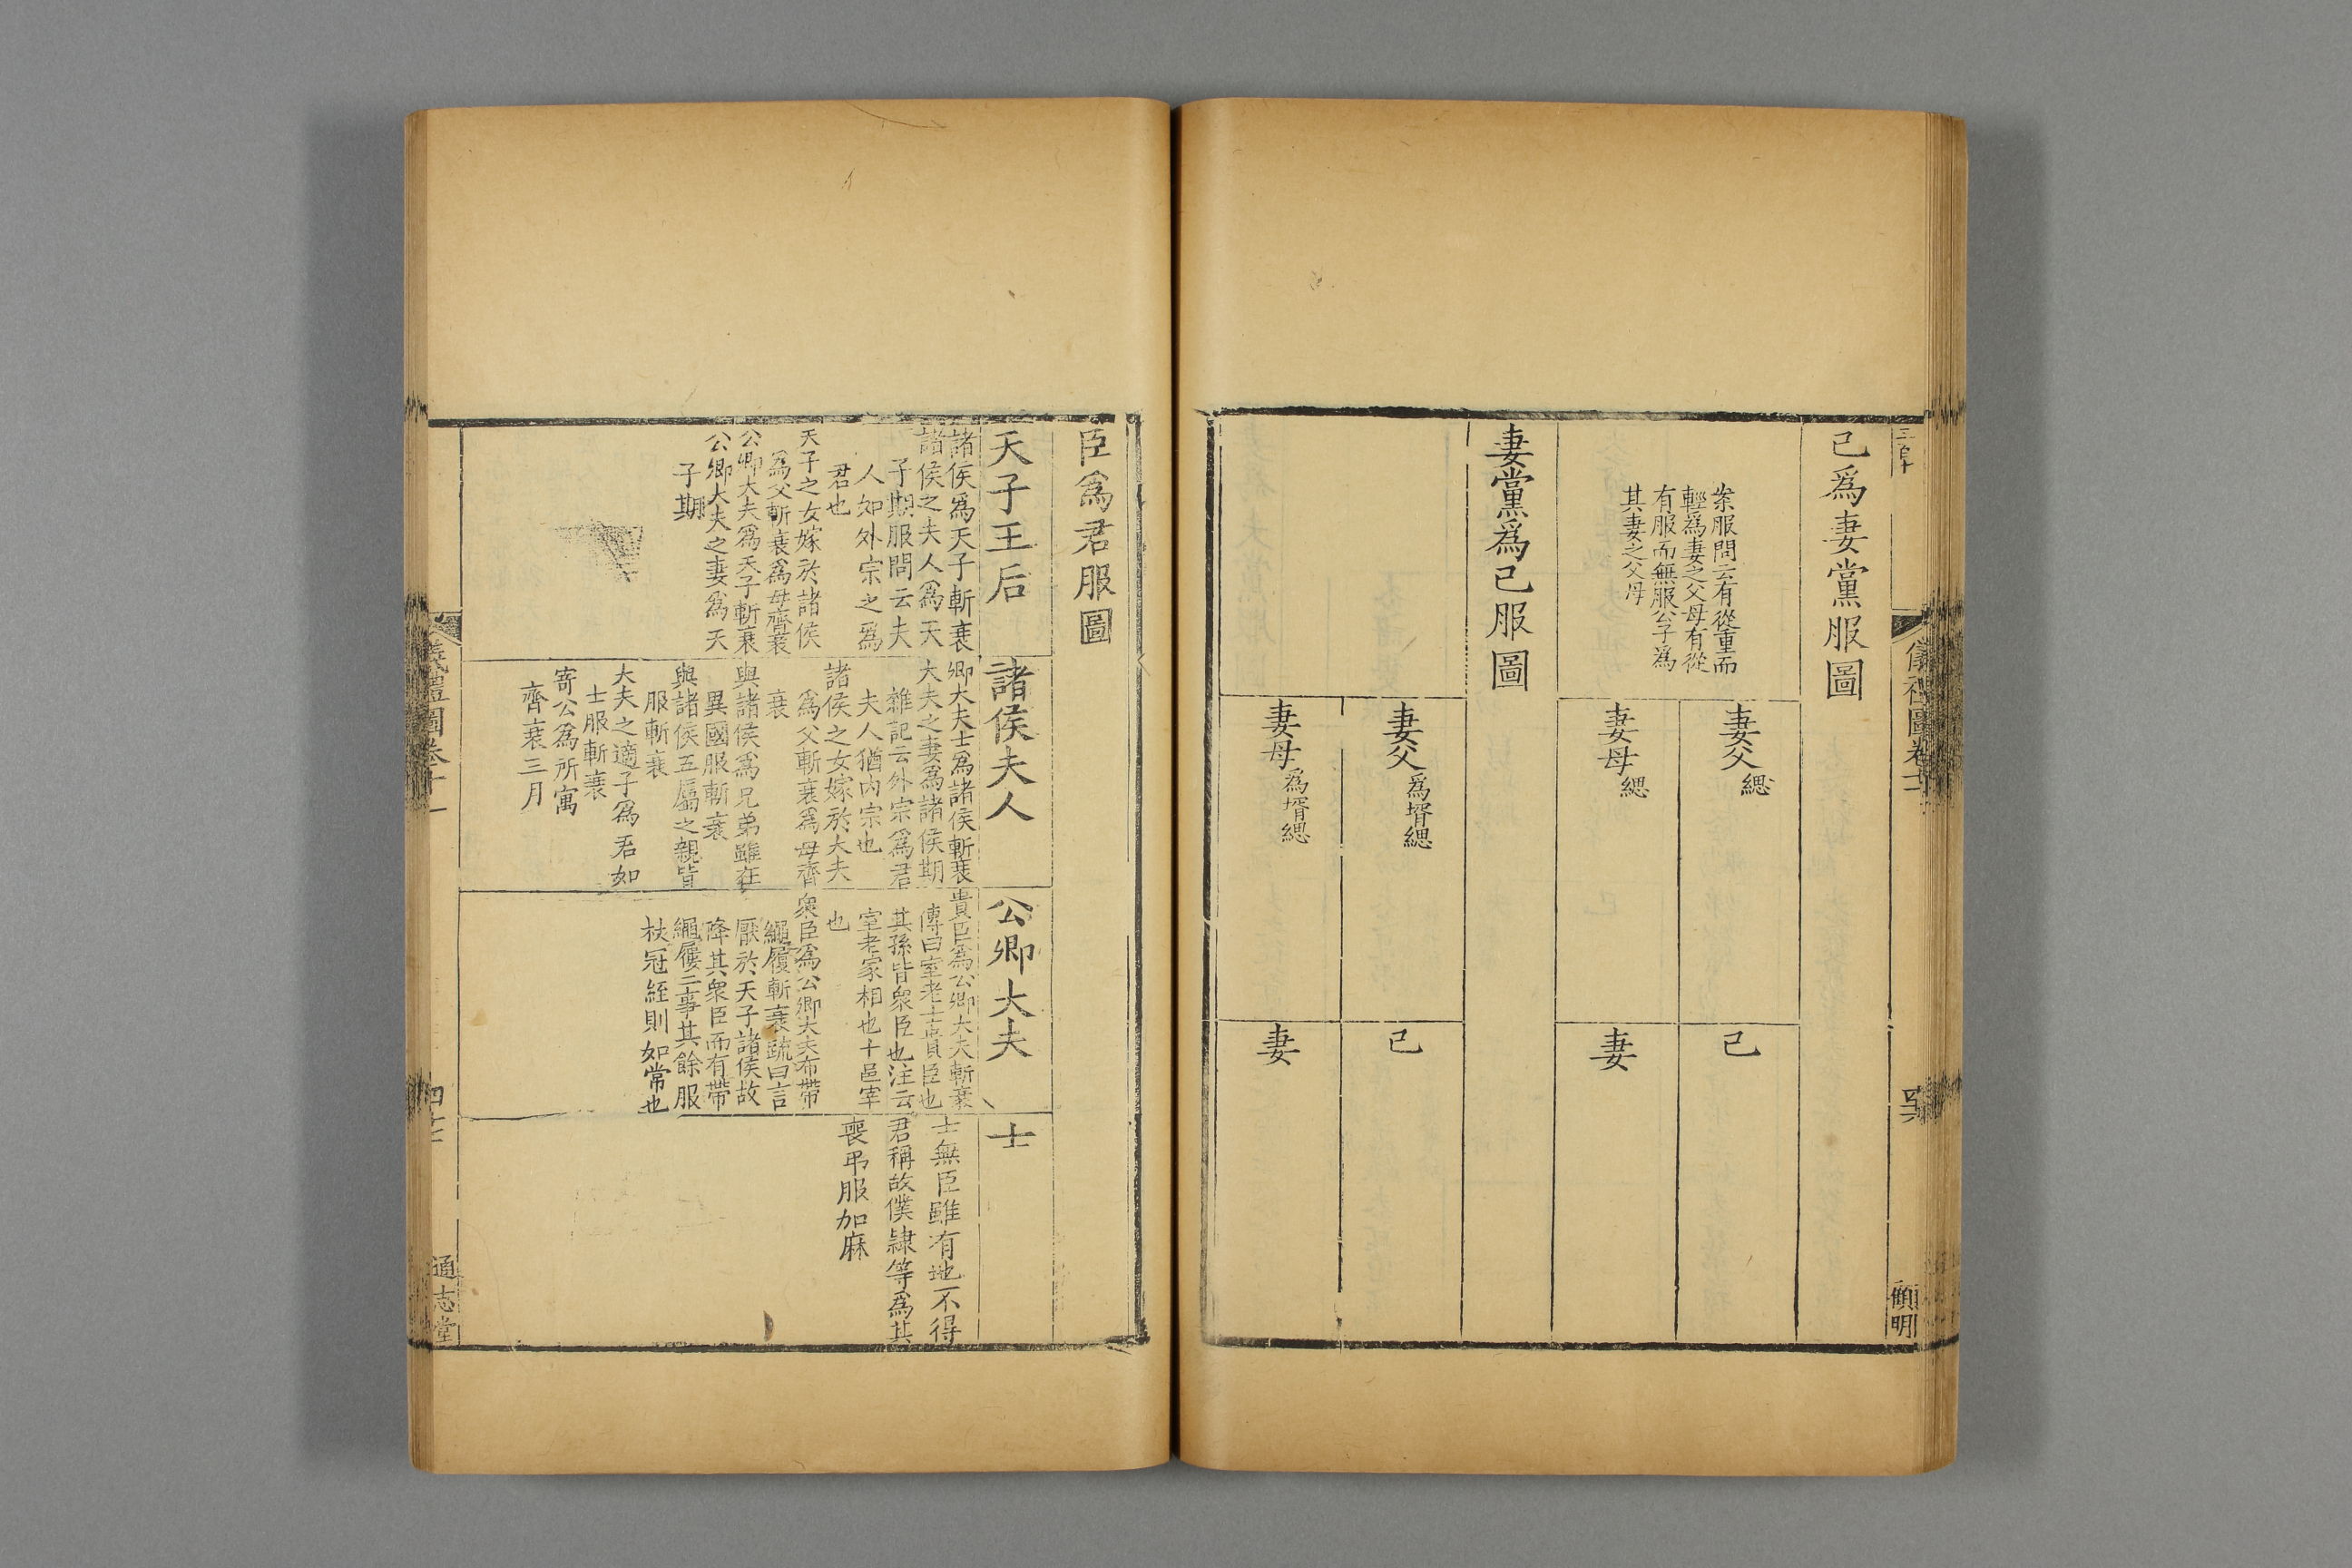 己爲妻黨服圖
案服問云有從重而
輕爲妻之父母有從
有服而無服公子爲
其妻之父母
妻父緦
己
妻母緦
妻
妻黨爲己服圖
妻父爲壻緦
己
妻母爲壻緦
妻
儀禮圖卷十一
臣爲君服圖
天子王后
諸侯爲天子斬衰
諸侯之夫人爲天
子期服問云夫
人如外宗之爲
君也
天子之女嫁於諸侯
爲父斬衰爲母齊衰
公卿大夫爲天子斬衰
公卿大夫之妻爲天
子期
諸侯夫人
卿大夫士爲諸侯斬衰
大夫之妻爲諸侯期
雜記云外宗爲君
夫人猶內宗也
諸侯之女嫁於大夫
爲父斬衰爲母齊
衰
與諸侯爲兄弟雖在
異國服斬衰
與諸侯五屬之親皆
服斬衰
大夫之適子爲君如
士服斬衰
寄公爲所寓
齊衰三月
公卿大夫
貴臣爲公卿大夫斬衰
傳曰室老士貴臣也
其孫皆衆臣也注云
室老家相也士邑宰
也
衆臣爲公卿大夫布帶
繩屨斬衰疏曰言
厭於天子諸侯故
降其衆臣而有帶
繩屨二事其餘服
杖冠絰則如常也
士
士無臣雖有地不得
君稱故僕隸等爲其
喪弔服加麻
儀禮圖卷十一
通志堂